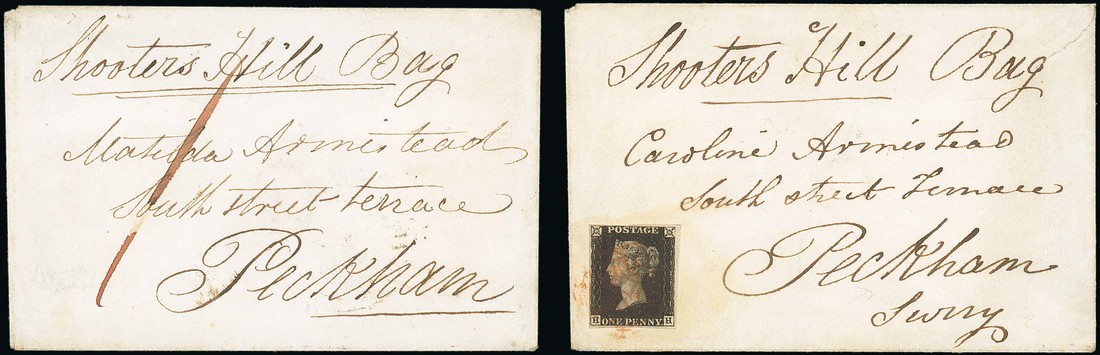 Shooters Hill Bag
Matilda Armistead
South street terrace
Peckham
Shooters Hill Bag
Caroline Armistead
South street Terrace
Peckham
Surry
POSTAGE
H ONE PENNY H